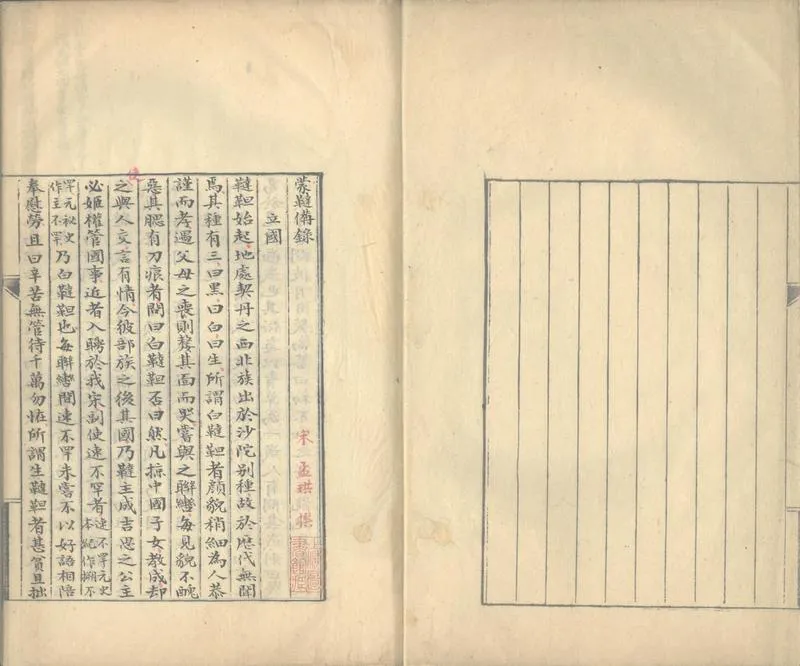 蒙韃偹錄 宋 孟珙 撰
立國
韃靼始起地處契丹之西北族出於沙陀別種故於厯代無聞
焉其種有三曰黑曰白曰生所謂白韃靼者顏貌稍細為人恭
謹而孝遇父母之喪則剺其面而哭嘗與之聯轡每見貌不醜
惡其腮有刀痕者問曰白韃靼否曰然凡掠中國子女教成却
之與人交言有情今彼部族之後其國乃韃主成吉思之公主
必姬權管國事近者入聘於我宋副使速不罕者速不罕元史本紀作搠不
罕元祕史作主不罕乃白韃靼也每聯轡間速不罕未嘗不以好語相陪
奉慰勞且曰辛苦無管待千萬勿恠所謂生韃靼者甚貧且拙